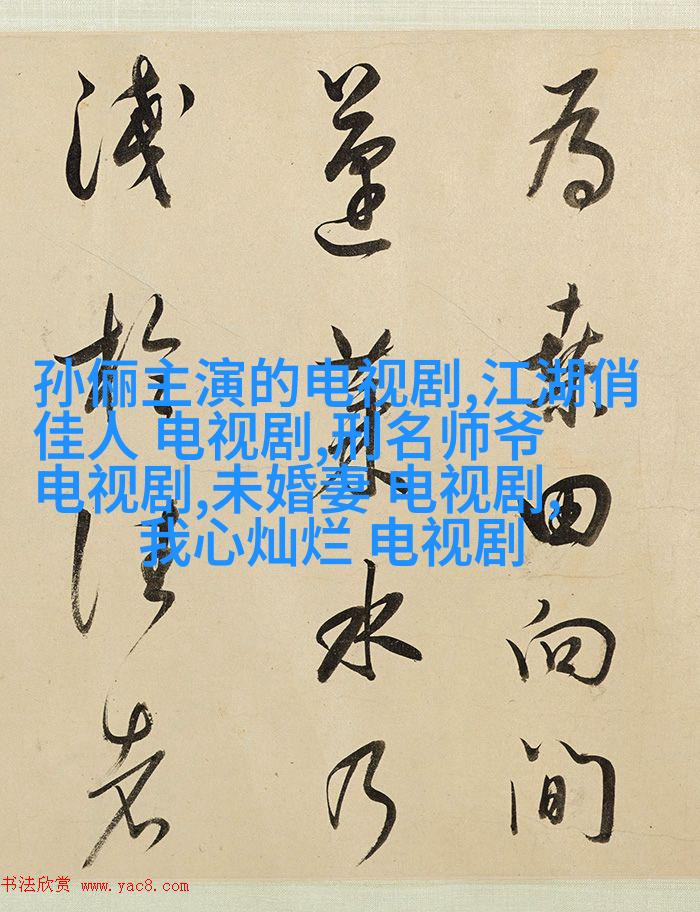 為桑田向間
蓬萊水乃
淺於往者
孙俪主演的电视剧,江湖俏
佳人 电视剧,刑名师爷
电视剧,未婚妻 电视剧,
我心灿烂 电视剧
书法欣赏 www.yac8.com